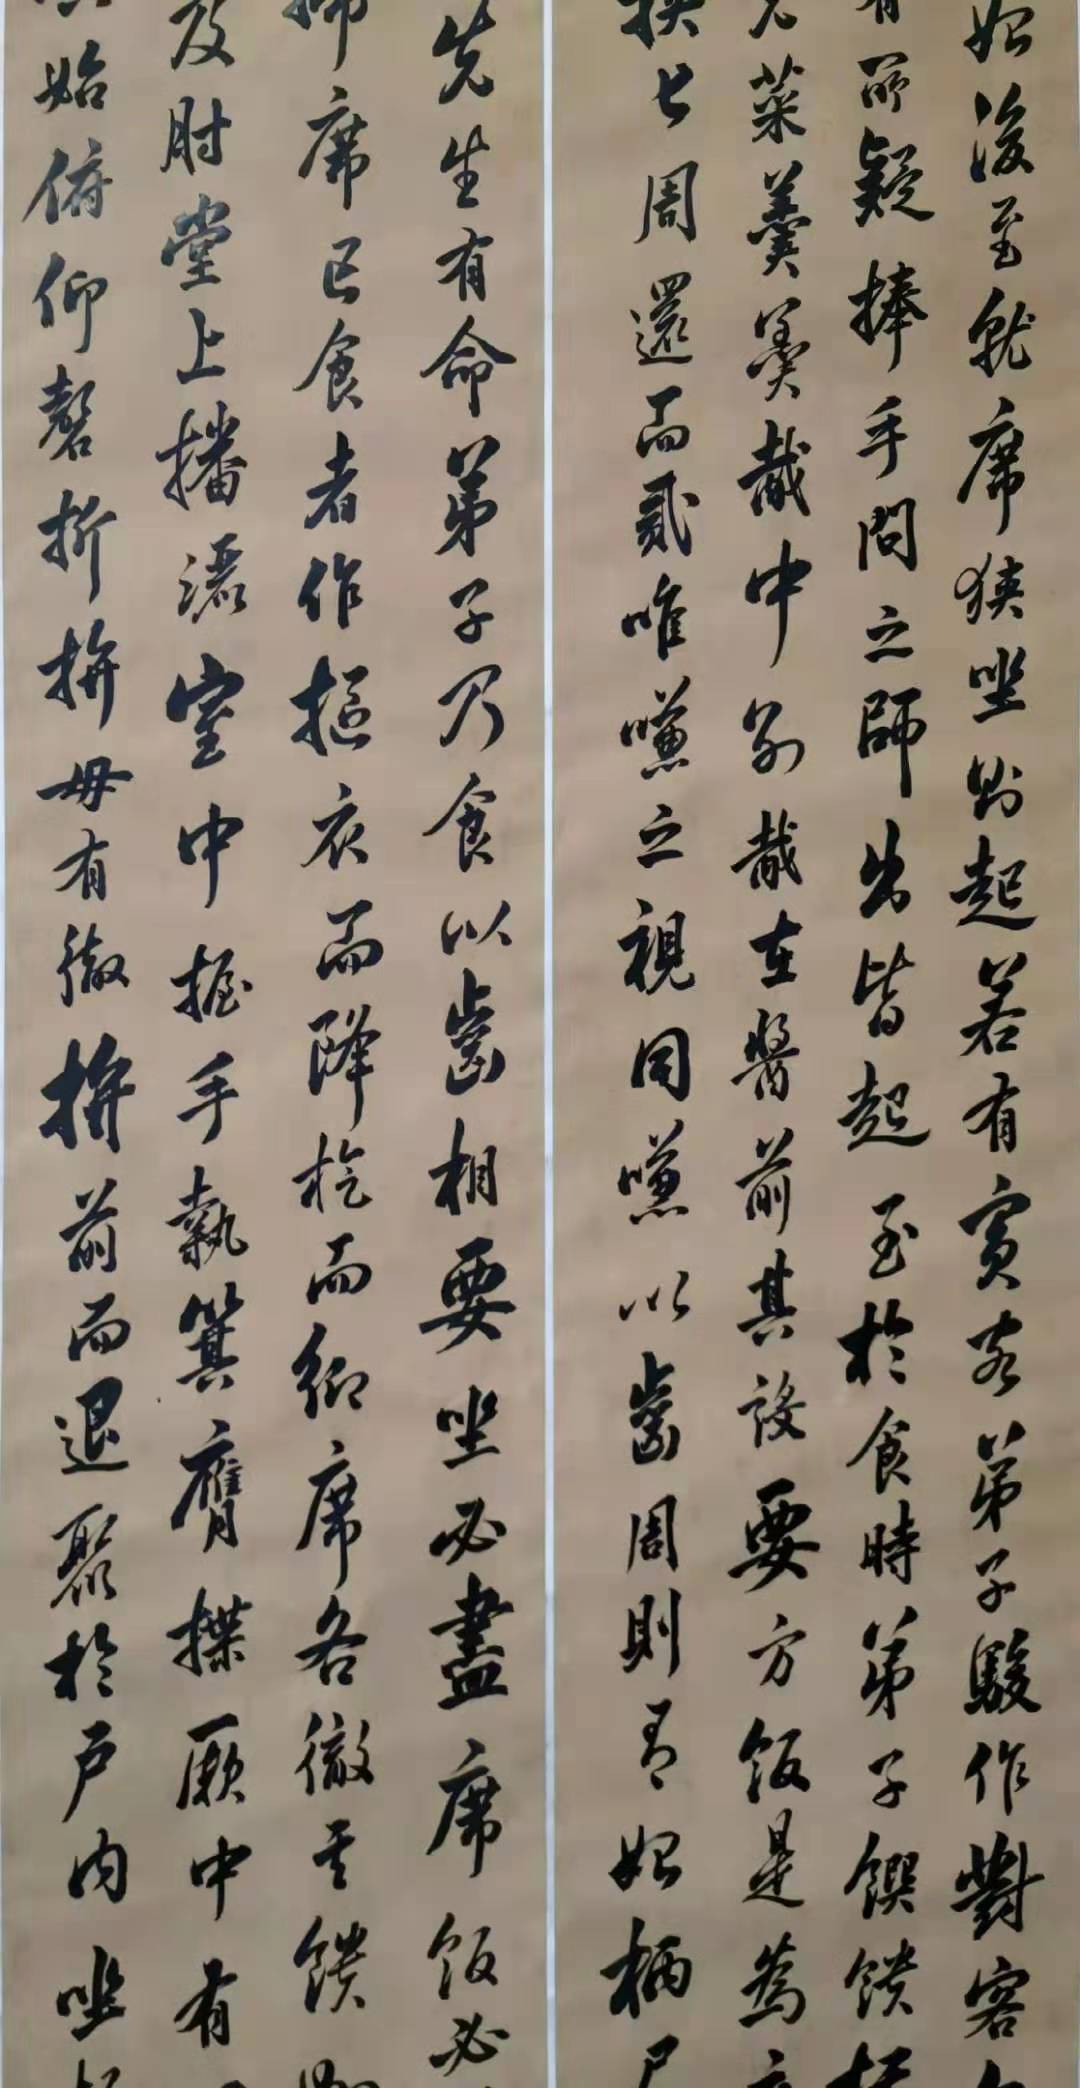 始後至就席狹坐則起若有賓客弟子駿作對客
有所疑捧手問之師出皆起至於食時弟子饌饋
先菜羹羹胾中別胾在醬前其設要方飯是為
挾匕周還而貳唯嗛之視同嗛以齒周則有始柄尺
先生有命弟子乃食以齒相要坐必盡席飯必
席已食者作摳衣而降旋而鄉席各徹其饋
及肘堂上播灑室中握手執箕膺揲厥中有
始俯仰磬折拚毋有徹拚前而退聚於戶内坐